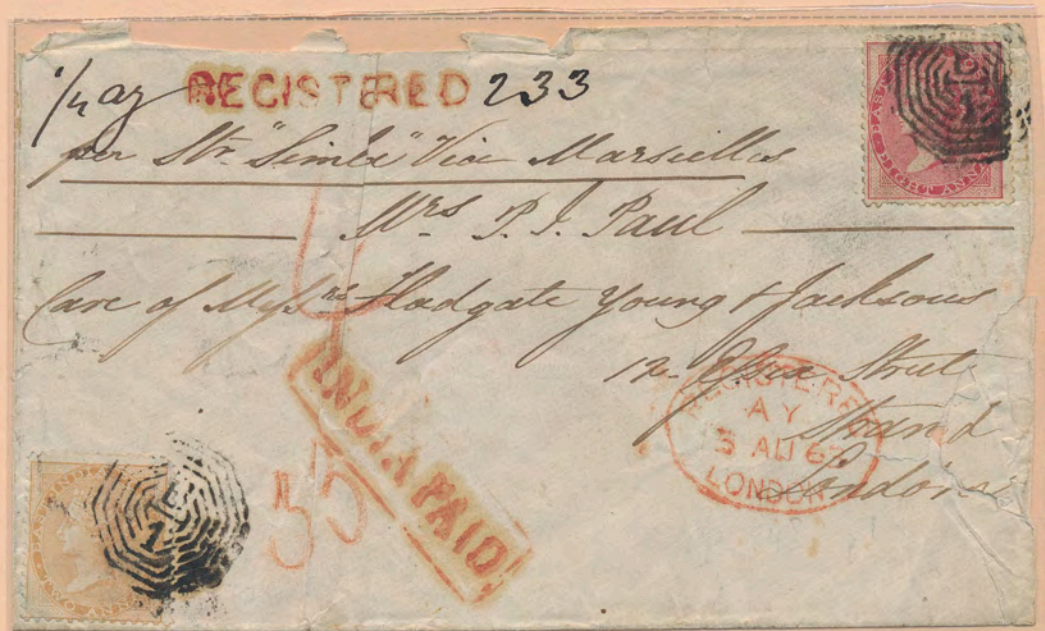 REGISTERED 233
per Str. "Simla" Via Marseilles
Mrs P. J. Paul
Care of Messrs Hadgate Young & Jacksons
12 Essex Street
Strand
London
INDIA PAID
REGISTERED
AY
3 AU 67
LONDON
55
EAST INDIA
TWO ANNAS
EIGHT ANNAS
1
1